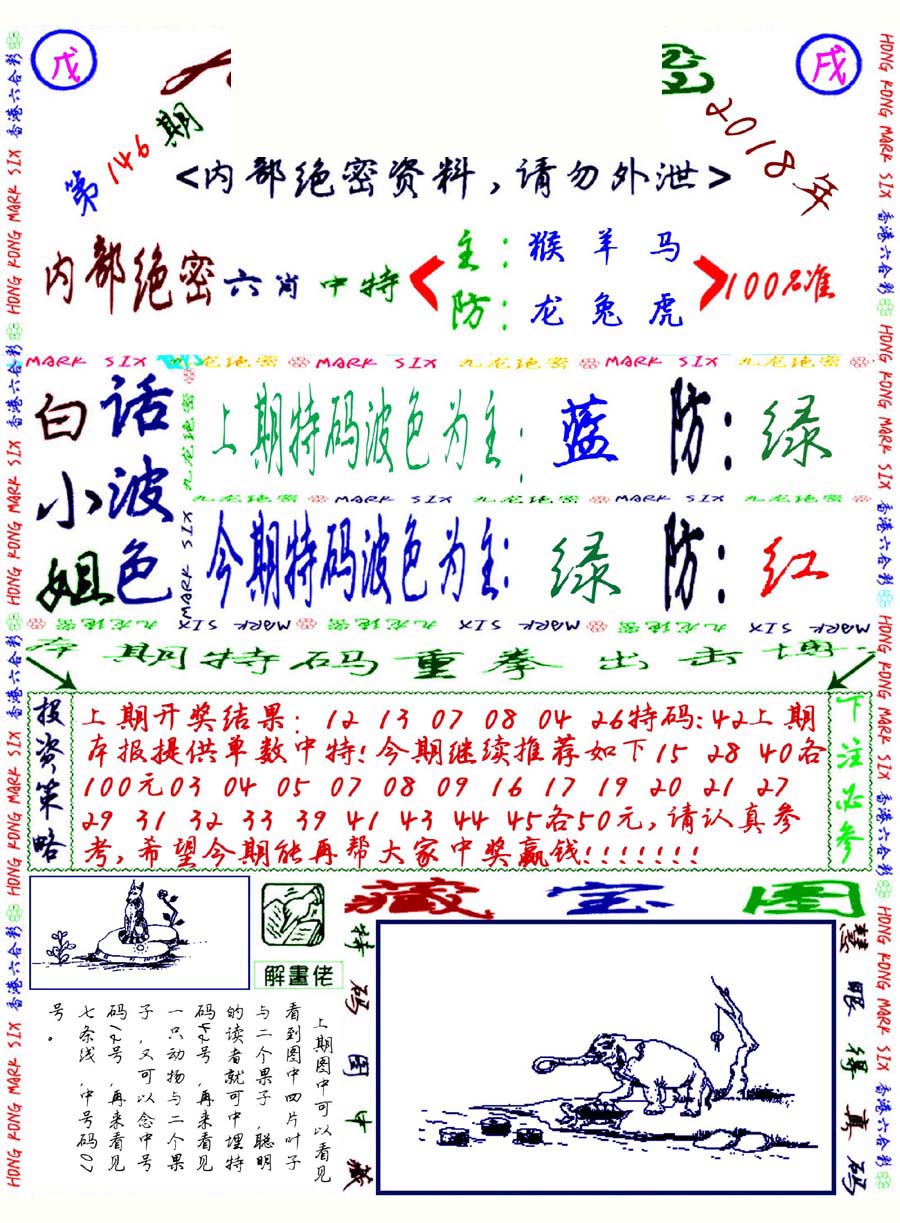 戊
戌
第146期
2018年
<内部绝密资料，请勿外泄>
内部绝密六肖中特
主：猴羊马
防：龙兔虎
100%准
MARK SIX 九龙绝密 MARK SIX 九龙绝密 MARK SIX 九龙绝密
白小姐
话波色
上期特码波色为主：蓝 防：绿
九龙绝密 MARK SIX 九龙绝密 MARK SIX 九龙绝密
今期特码波色为主：绿 防：红
九龙绝密 MARK SIX 九龙绝密 MARK SIX 九龙绝密 MARK SIX
本期特码重拳出击博
投资策略
上期开奖结果：12 13 07 08 04 26特码:42上期
本报提供单数中特!今期继续推荐如下15 28 40各
100元03 04 05 07 08 09 16 17 19 20 21 27
29 31 32 33 39 41 43 44 45各50元，请认真参
考，希望今期能再帮大家中奖赢钱!!!!!!!
下注必参
藏宝图
解畫佬
特码图中藏
慧眼得真码
上期图中可以看见
看到图中四片叶子
与二个果子，聪明
的读者就可中埋特
码42号，再来看见
一只动物与二个果
子，又可以念中号
码12号，再来看见
七条线，中号码07
号。
HONG KONG MARK SIX 香港六合彩 HONG KONG MARK SIX 香港六合彩 HONG KONG MARK SIX 香港六合彩 HONG KONG MARK SIX 香港六合彩
HONG KONG MARK SIX 香港六合彩 HONG KONG MARK SIX 香港六合彩 HONG KONG MARK SIX 香港六合彩 HONG KONG MARK SIX 香港六合彩